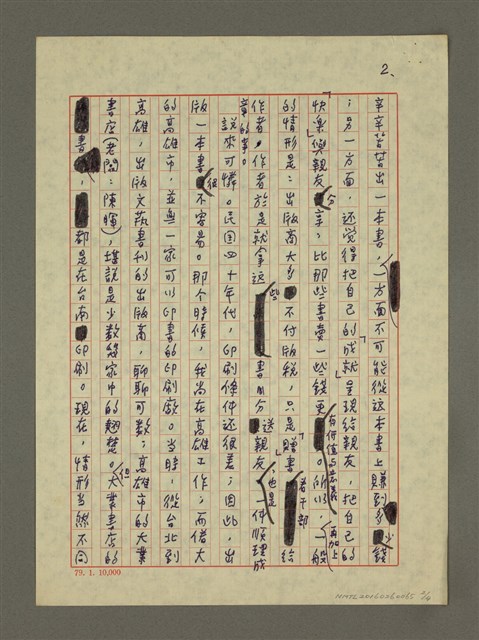 2、
辛辛苦苦出一本書，一方面不可能從這本書上賺到多少錢
；另一方面，还觉得把自己的「成就」呈現給親友，把自己的
「快樂」與親友分享，比那些書賣一些錢更有價值与意義。所以，再加上一般
的情形是：出版商大多不付版税，只是「贈書」若干部給
作者，作者於是就拿這些書分送親友，也是一件順理成
章的事。
說來可憐。民国四十年代，印刷條件还很差；因此，出
版一本書很不容易。那个時候，我尚在高雄工作；而偌大
的高雄市，並無一家可以印書的印刷廠。当時，從台北到
高雄，出版文藝書刊的出版商，聊聊可数；高雄市的大業
書店（老闆：陳暉），堪說是少数幾家中的翹楚。但大業書店的
書，都是在台南印刷。現在，情形当然不同
79. 1. 10,000
NMTL20060060065 2/4